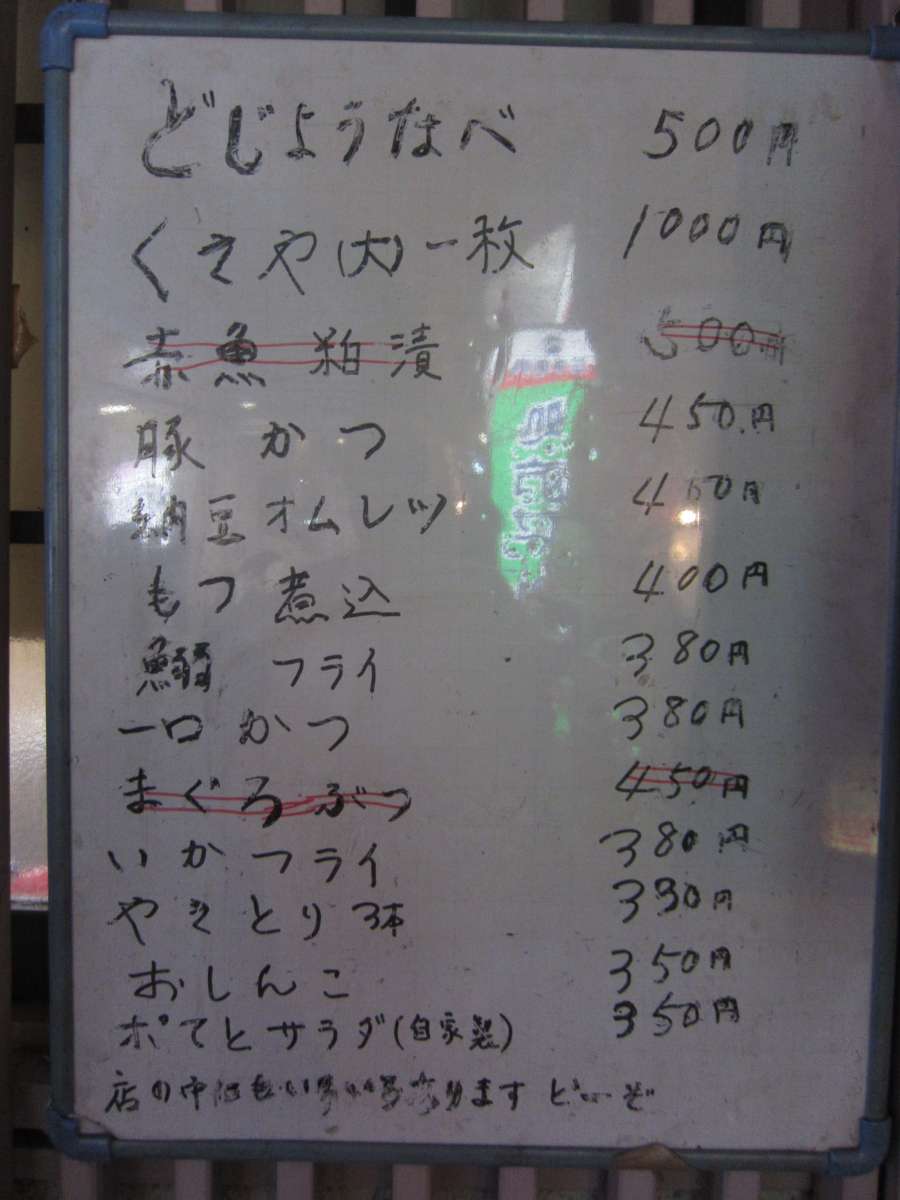 どじょうなべ 500円
くさや(大)一枚 1000円
赤魚粕漬 500円
豚かつ 450円
納豆オムレツ 450円
もつ煮込 400円
鰯フライ 380円
一口かつ 380円
まぐろぶつ 450円
いかフライ 380円
やきとり3本 330円
おしんこ 350円
ポてとサラダ(自家製) 350円
店の中にもいろいろあります どーぞ